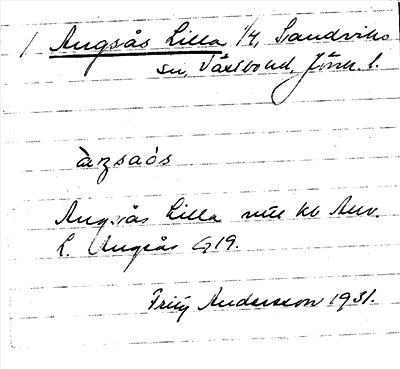 / Angsås Lilla 1/4, Sandviks
sn, Västbo hd, Jönk. l.
àŋsaós
Angsås Lilla mtl kb Anv.
L. Angsås G19.
Fritz Andersson 1931.